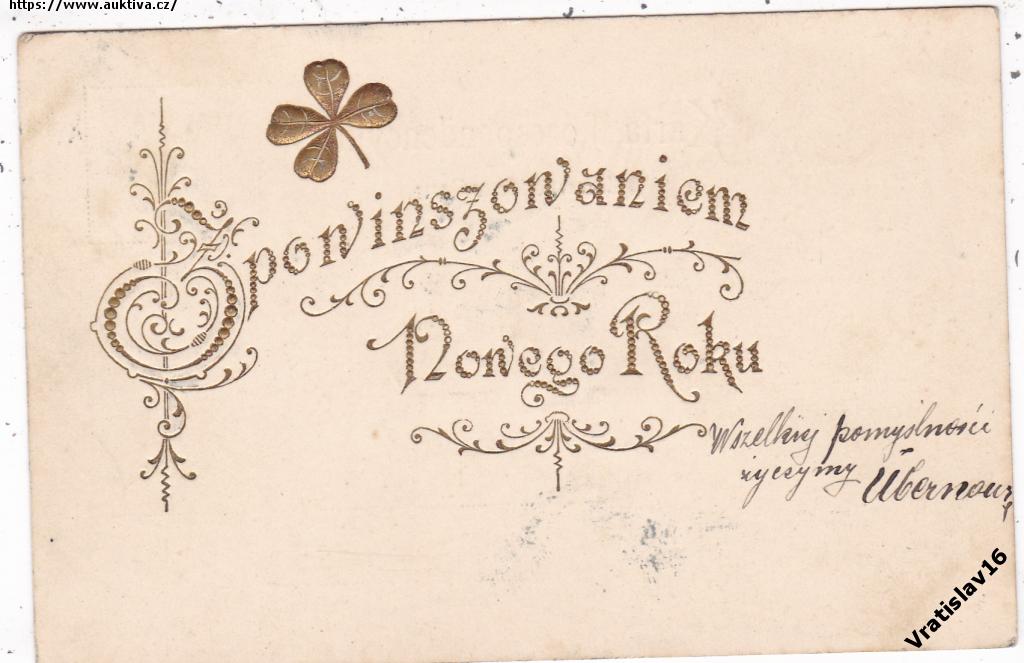 https://www.auktiva.cz/
Z powinszowaniem
Nowego Roku
Wszelkiej pomyślności
życzymy
Vratislav16